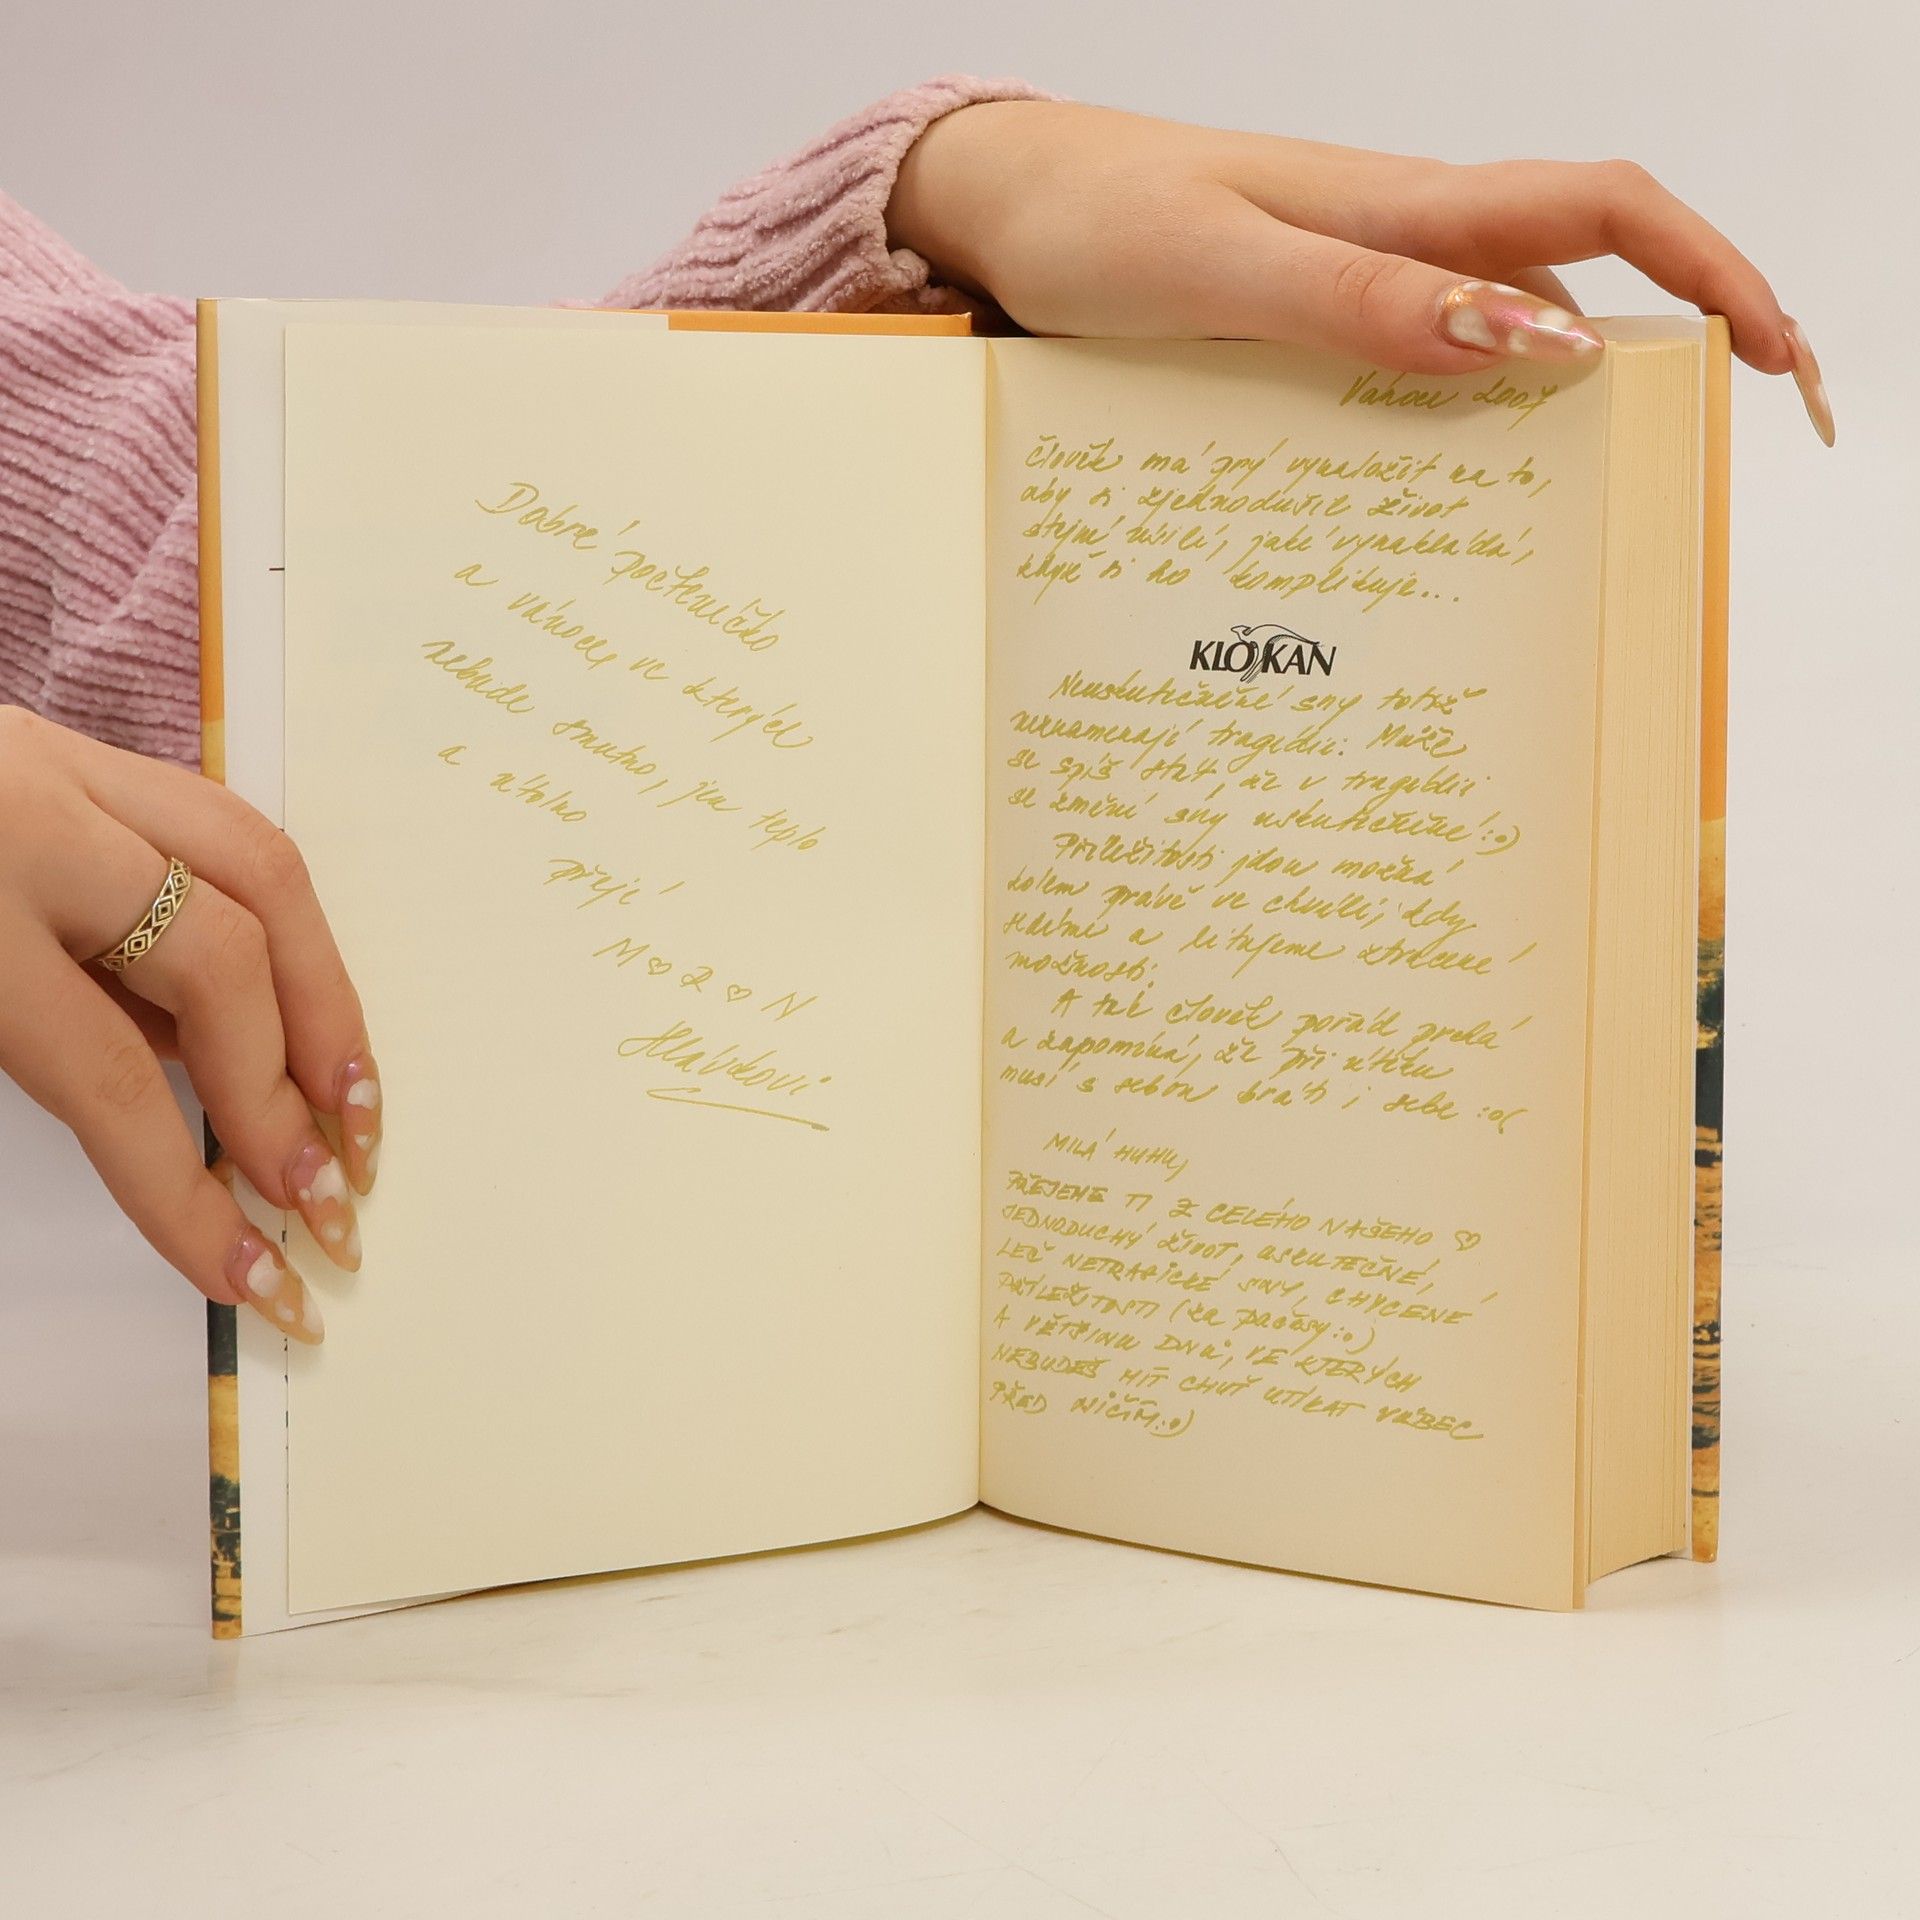 Dobré počteníčko
a vánoce, ve kterých
nebude smutno, jen teplo
a útulno
přejí
M ♡ R ♡ N
Hlávkovi
Vánoce 2007
Člověk má prý vynaložit na to,
aby si zjednodušil život
stejné úsilí, jaké vynakládá,
když si ho komplikuje...
KLOKAN
Neuskutečněné sny totiž
neznamenají tragédii. Může
se spíš stát, že v tragédii
se změní sny uskutečněné :o)
Příležitosti jdou možná
kolem právě ve chvíli, kdy
sedíme a litujeme ztracené
možnosti.
A tak člověk pořád prchá
a zapomíná, že při útěku
musí s sebou bráti i sebe :o(
MILÁ HUHU,
PŘEJEME TI Z CELÉHO NAŠEHO ♡
JEDNODUCHÝ ŽIVOT, USKUTEČNĚNÉ,
LEČ NETRAGICKÉ SNY, CHYCENÉ
PŘÍLEŽITOSTI (ZA PAČESY :o)
A VĚTŠINU DNŮ, VE KTERÝCH
NEBUDEŠ MÍT CHUŤ UTÍKAT VŮBEC
PŘED NIČÍM :o)